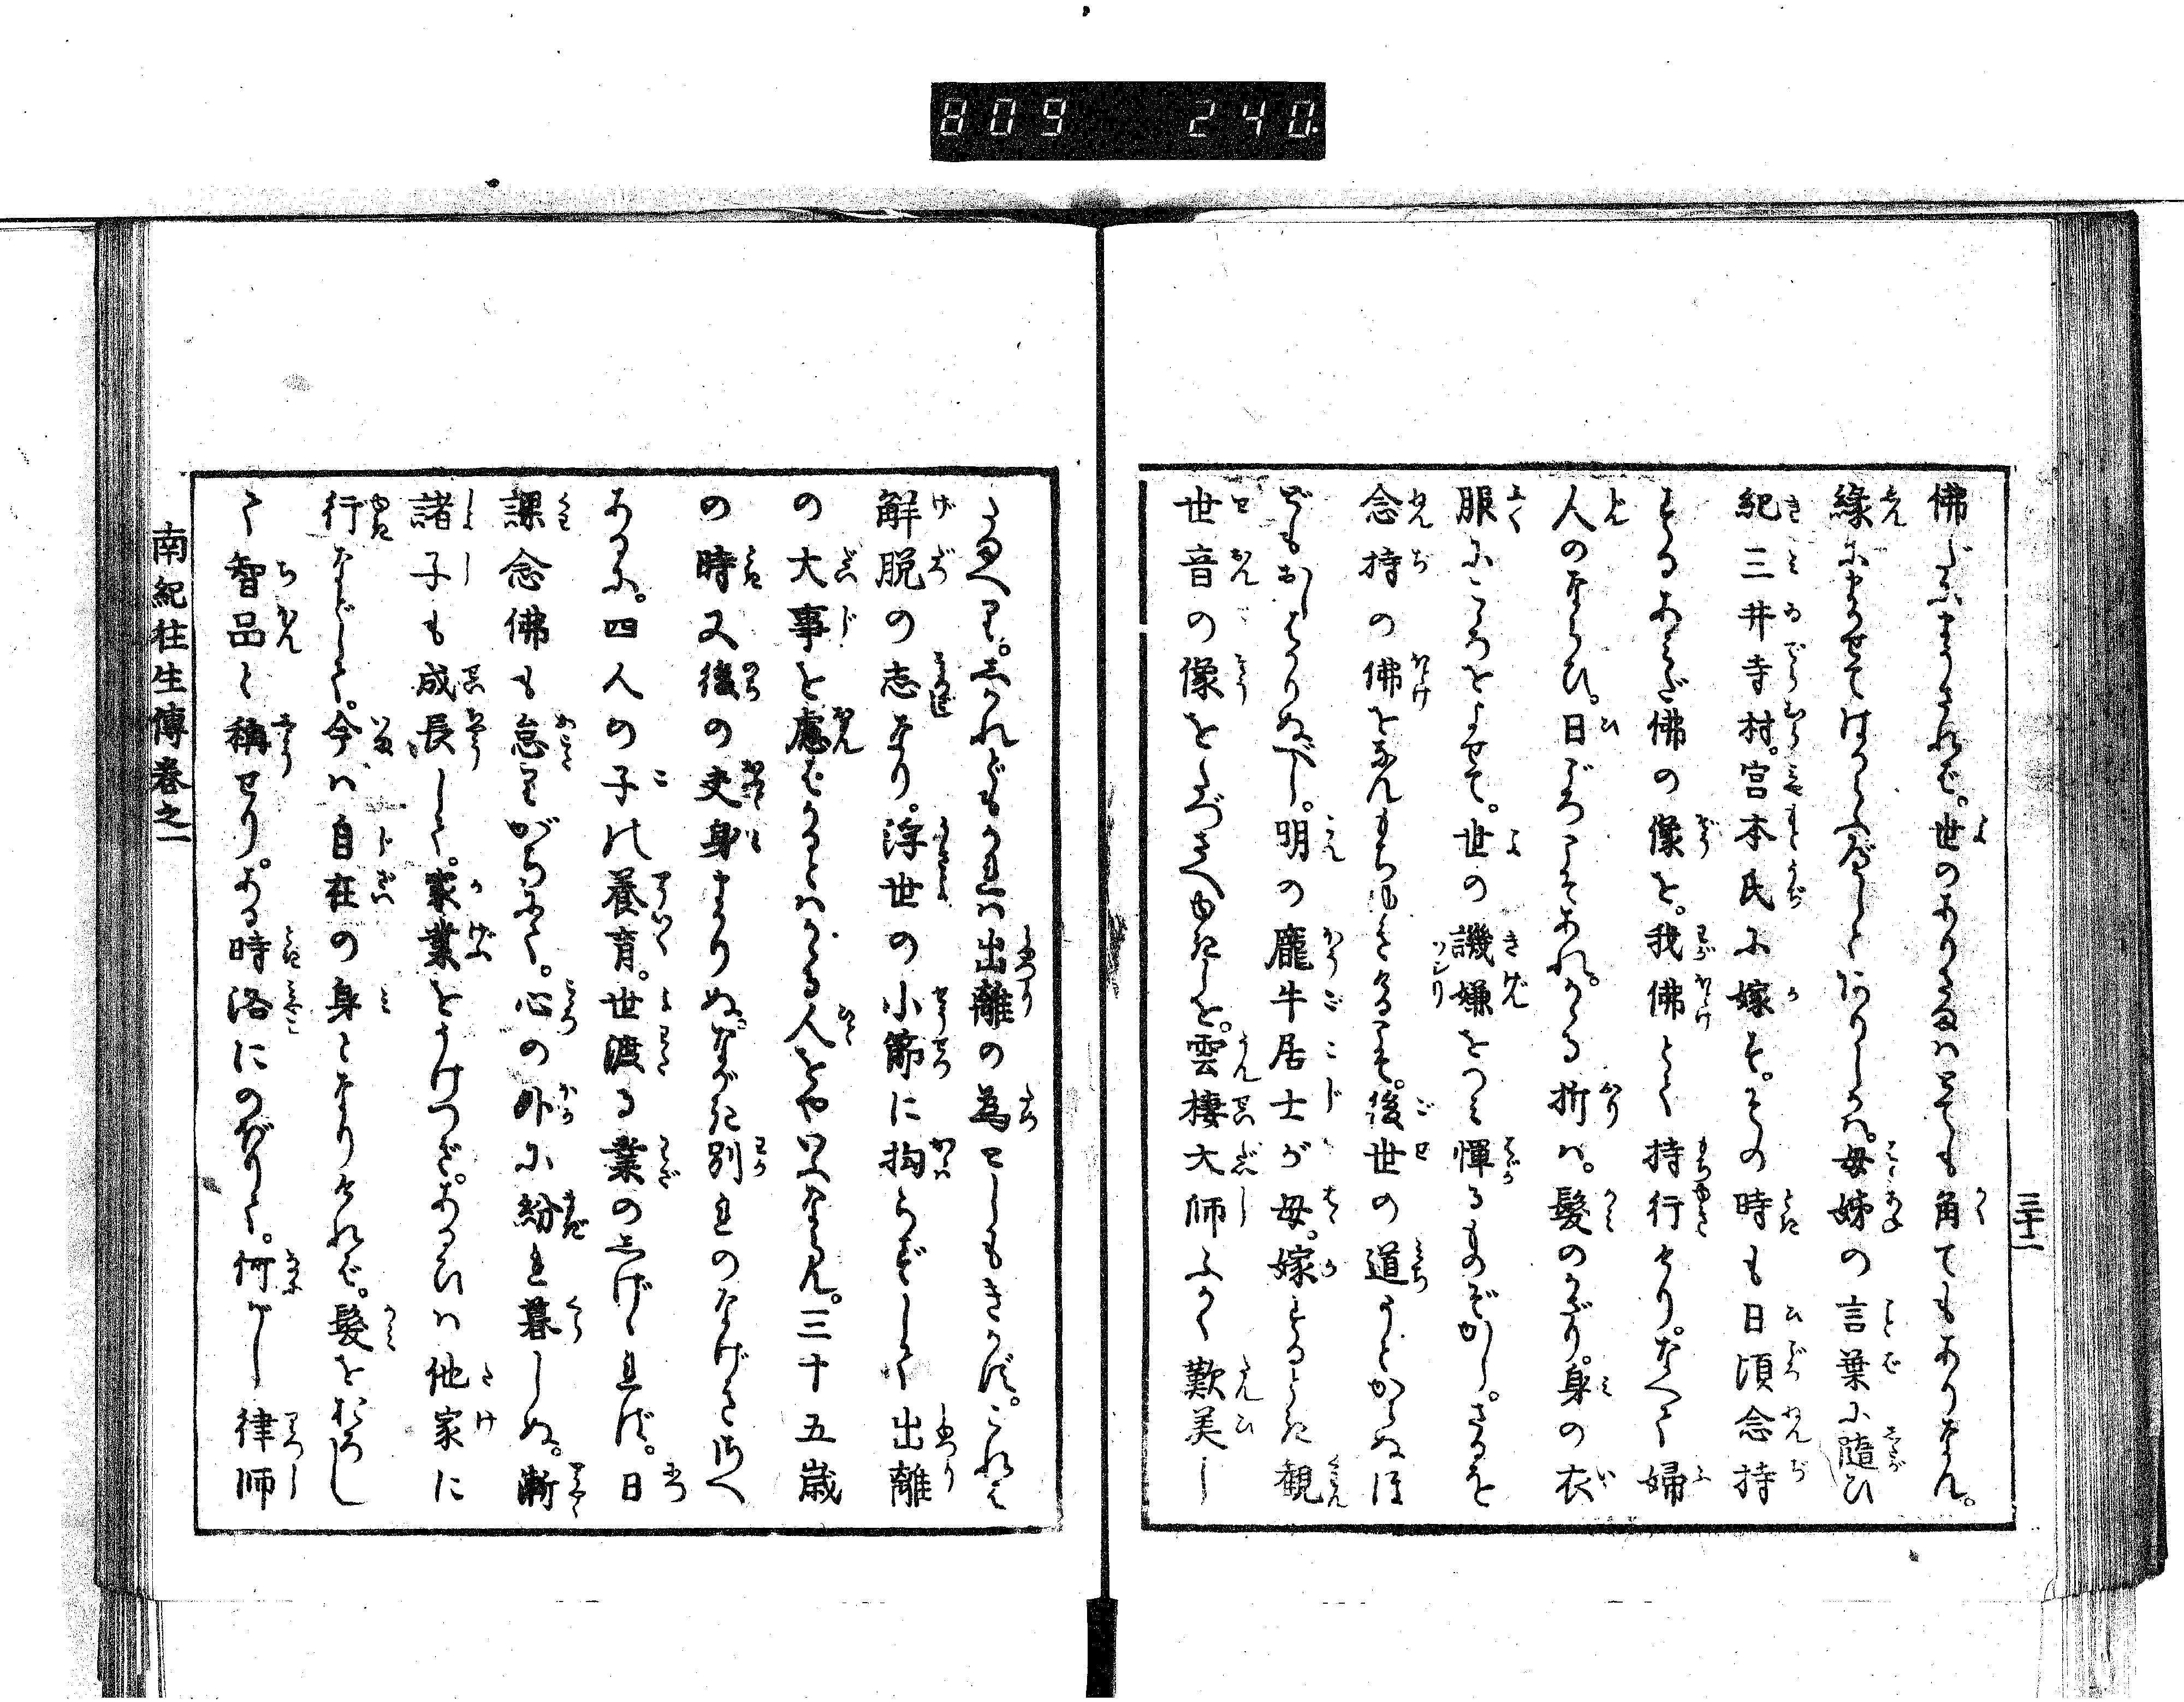 809 240.
三十二
佛だにまうされば。世のありさまはとても角てもありなん。
縁にまかせてはからふべしとありしかば。母姊の言葉に隨ひ
紀三井寺村。宮本氏に嫁す。その時も日頃念持
せるあみだ佛の像を。我佛とて持行けり。なべて婦
人のならひ。日ごろこそあれ。かゝる折は。髮のかざり。身の衣
服にこゝろをよせて。世の譏嫌をつゝみ憚るものぞかし。さるを
念持の佛をなんもちもとめるこそ。後世の道うとからぬほ
どもおしはかりぬべし。明の龐牛居士が母。嫁するとき観
世音の像をたづさへゆきしを。雲棲大師ふかく歎美し
たまへり。しかれどもかれは出離の為にしもきかず。これは
解脱の志なり。浮世の小節に拘らずして出離
の大事を慮ぜることはかゝる人をやいふならん。三十五歳
の時又後の夫身まかりぬ。ながき別れのなげきさへ
あるに。四人の子の養育。世渡る業のしげゝれば。日
課念佛も怠りがちにて。心の外に紛れ暮しぬ。漸
諸子も成長して。家業をうけつぎ。あるひは他家に
行などして。今は自在の身となりければ。髮をおろし
て智品と稱せり。ある時洛にのぼりて。何がし律師
南紀往生傳卷之一